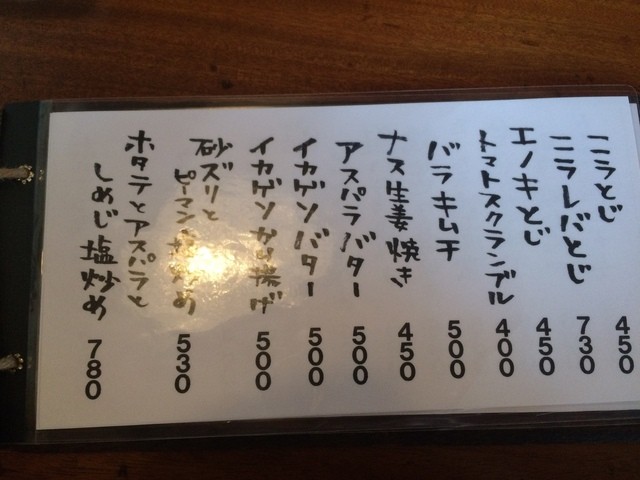 ニラとじ 450
ニラレバとじ 730
エノキとじ 450
トマトスクランブル 400
バラキムチ 500
ナス生姜焼き 450
アスパラバター 500
イカゲソバター 500
イカゲソから揚げ 500
砂ズリと
ピーマン塩炒め 530
ホタテとアスパラと
しめじ塩炒め 780